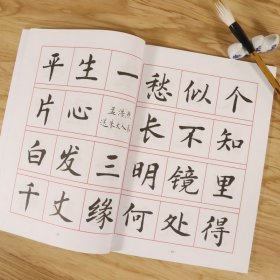 平生一
片心
孟浩然
送朱大入秦
白发三
千丈缘
愁似个
长不知
明镜里
何处得